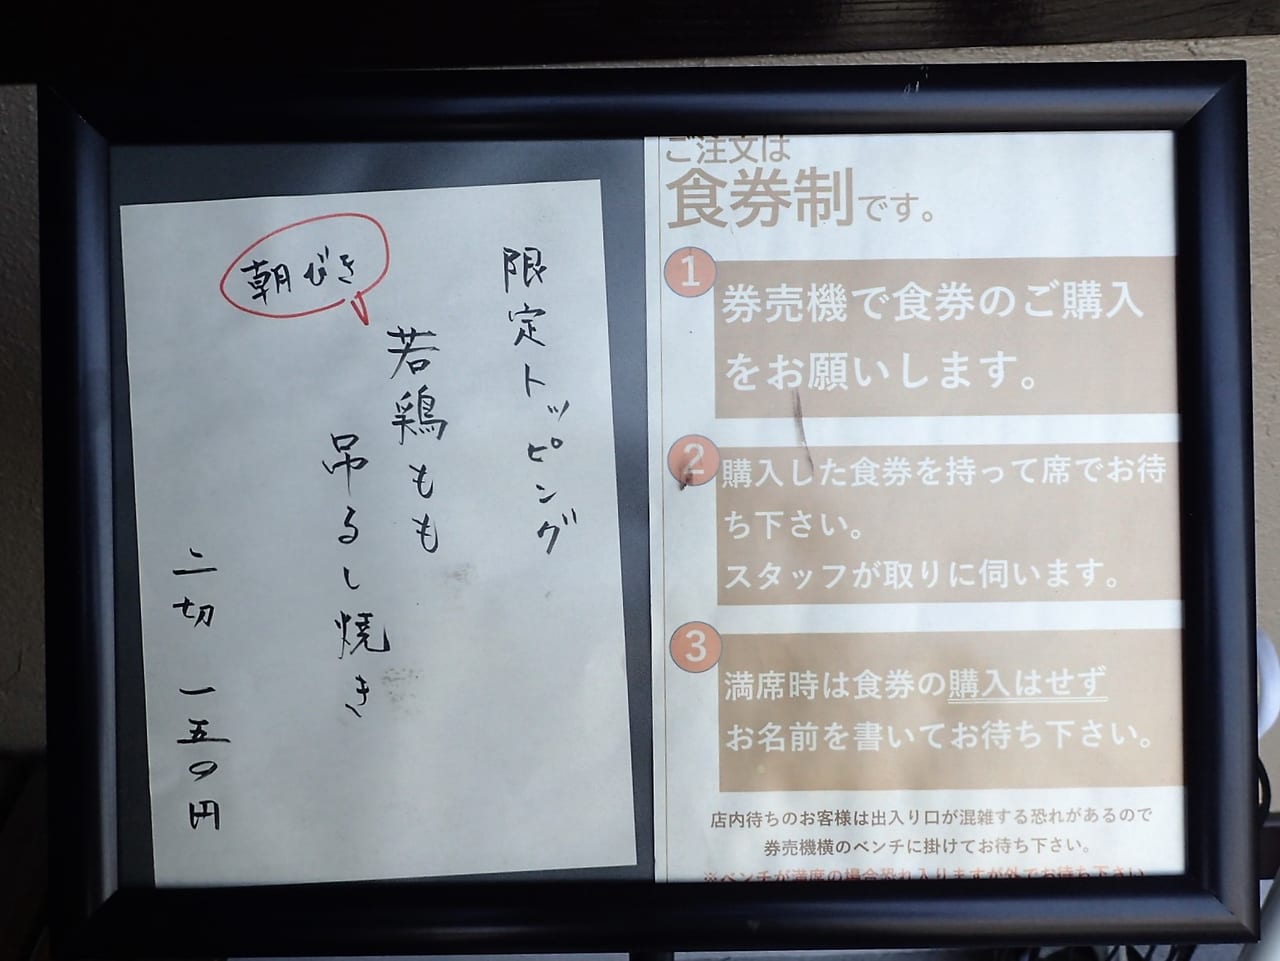 限定トッピング
朝びき
若鶏もも
吊るし焼き
二切 一五〇円
ご注文は
食券制です。
1
券売機で食券のご購入
をお願いします。
2
購入した食券を持って席でお待
ち下さい。
スタッフが取りに伺います。
3
満席時は食券の購入はせず
お名前を書いてお待ち下さい。
店内待ちのお客様は出入り口が混雑する恐れがあるので
券売機横のベンチに掛けてお待ち下さい。
※ベンチが満席の場合恐れ入りますが外でお待ち下さい